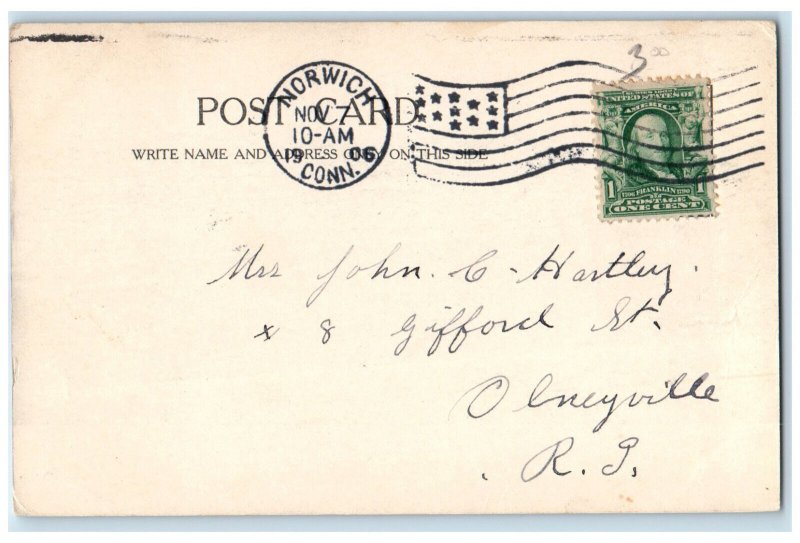 3 00
POST CARD
WRITE NAME AND ADDRESS ONLY ON THIS SIDE
NORWICH
NOV 7
10-AM
19 06
CONN.
UNITED STATES OF
AMERICA
1 1706 FRANKLIN 1790 1
POSTAGE
ONE CENT
Mrs John. C - Hartley.
x 8 Gifford St.
Olneyville
R. I.